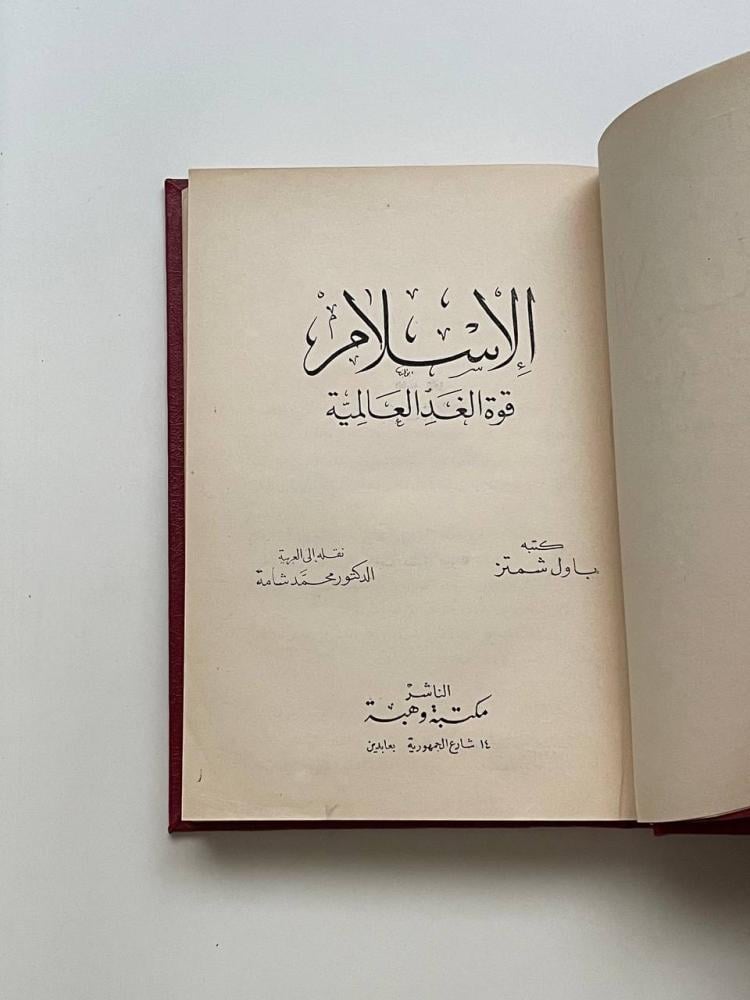 الإسلام
قوة الغد العالمية
كتبه
باول شمتز
نقله إلى العربية
الدكتور محمد شامة
الناشر
مكتبة وهبة
١٤ شارع الجمهورية بعابدين